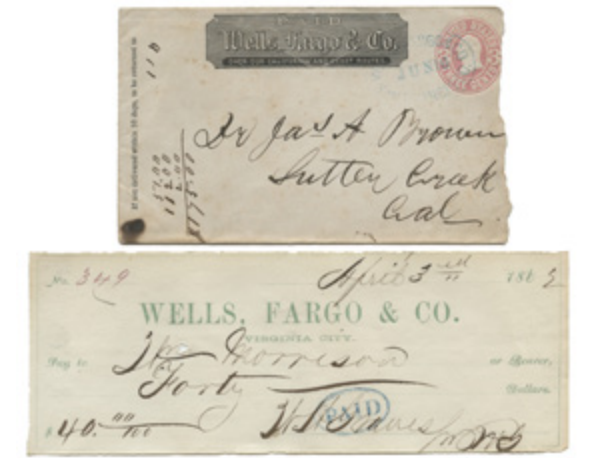 PAID
Wells, Fargo & Co.
OVER OUR CALIFORNIA AND COAST ROUTES.
JUN
THREE CENTS
If not delivered within 10 days, to be returned to
Dr Jas A Brown
Sutter Creek
Cal
No. 349
April 3rd 186
WELLS, FARGO & CO.
VIRGINIA CITY.
Pay to Wm Morrison or Bearer,
Forty Dollars.
PAID
$40.00/100